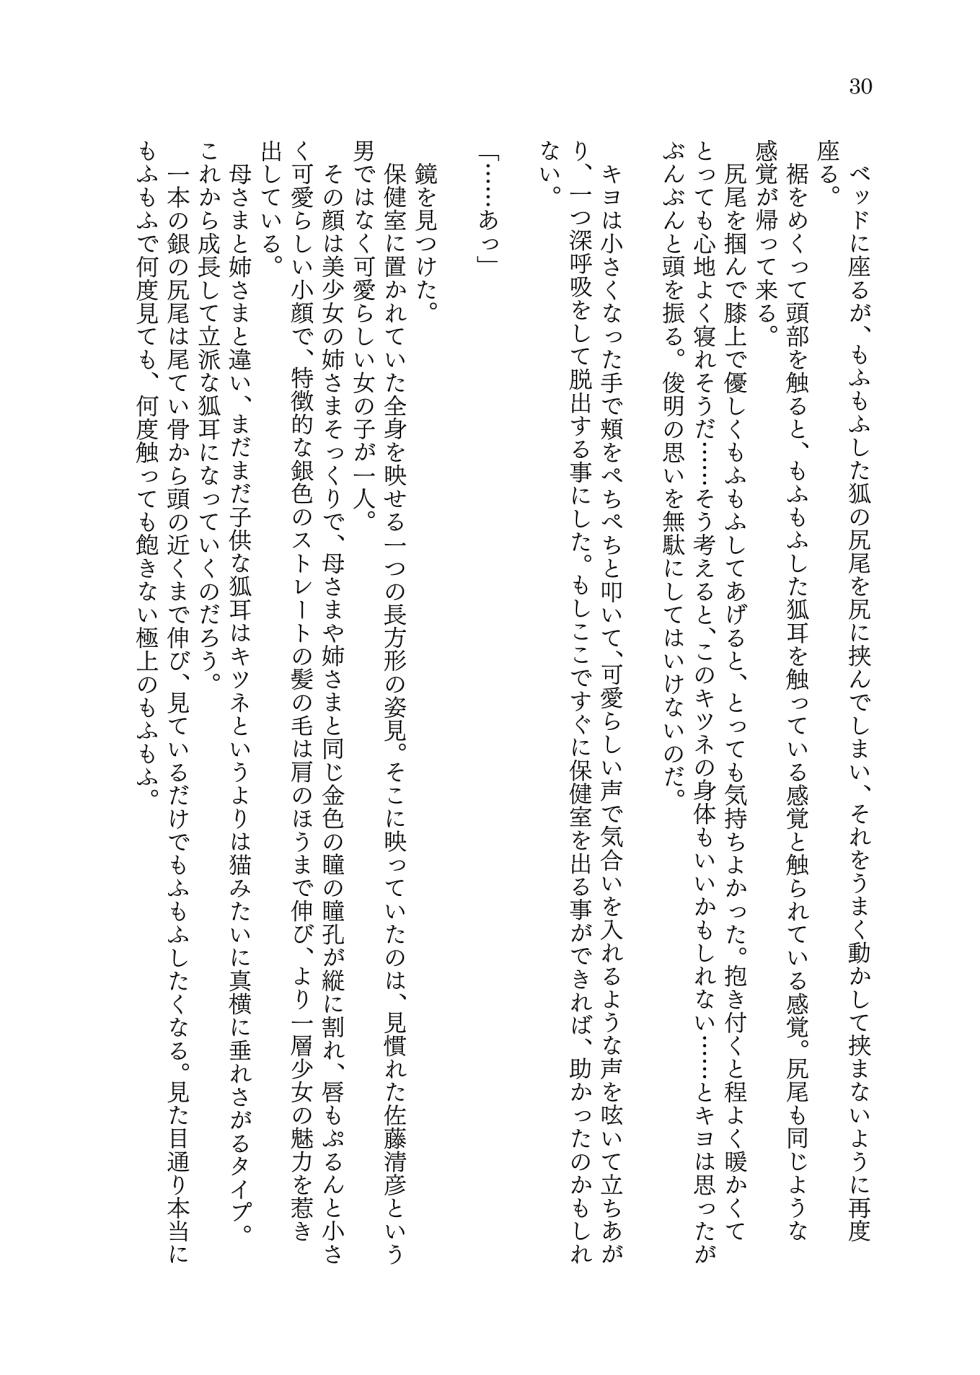 30
　ベッドに座るが、もふもふした狐の尻尾を尻に挟んでしまい、それをうまく動かして挟まないように再度
座る。
　裾をめくって頭部を触ると、もふもふした狐耳を触っている感覚と触られている感覚。尻尾も同じような
感覚が帰って来る。
　尻尾を掴んで膝上で優しくもふもふしてあげると、とっても気持ちよかった。抱き付くと程よく暖かくて
とっても心地よく寝れそうだ……そう考えると、このキツネの身体もいいかもしれない……とキヨは思ったが
ぶんぶんと頭を振る。俊明の思いを無駄にしてはいけないのだ。
　キヨは小さくなった手で頬をぺちぺちと叩いて、可愛らしい声で気合いを入れるような声を呟いて立ちあが
り、一つ深呼吸をして脱出する事にした。もしここですぐに保健室を出る事ができれば、助かったのかもしれ
ない。
「……あっ」
　鏡を見つけた。
　保健室に置かれていた全身を映せる一つの長方形の姿見。そこに映っていたのは、見慣れた佐藤清彦という
男ではなく可愛らしい女の子が一人。
　その顔は美少女の姉さまそっくりで、母さまや姉さまと同じ金色の瞳の瞳孔が縦に割れ、唇もぷるんと小さ
く可愛らしい小顔で、特徴的な銀色のストレートの髪の毛は肩のほうまで伸び、より一層少女の魅力を惹き
出している。
　母さまと姉さまと違い、まだまだ子供な狐耳はキツネというよりは猫みたいに真横に垂れさがるタイプ。
これから成長して立派な狐耳になっていくのだろう。
　一本の銀の尻尾は尾てい骨から頭の近くまで伸び、見ているだけでもふもふしたくなる。見た目通り本当に
もふもふで何度見ても、何度触っても飽きない極上のもふもふ。